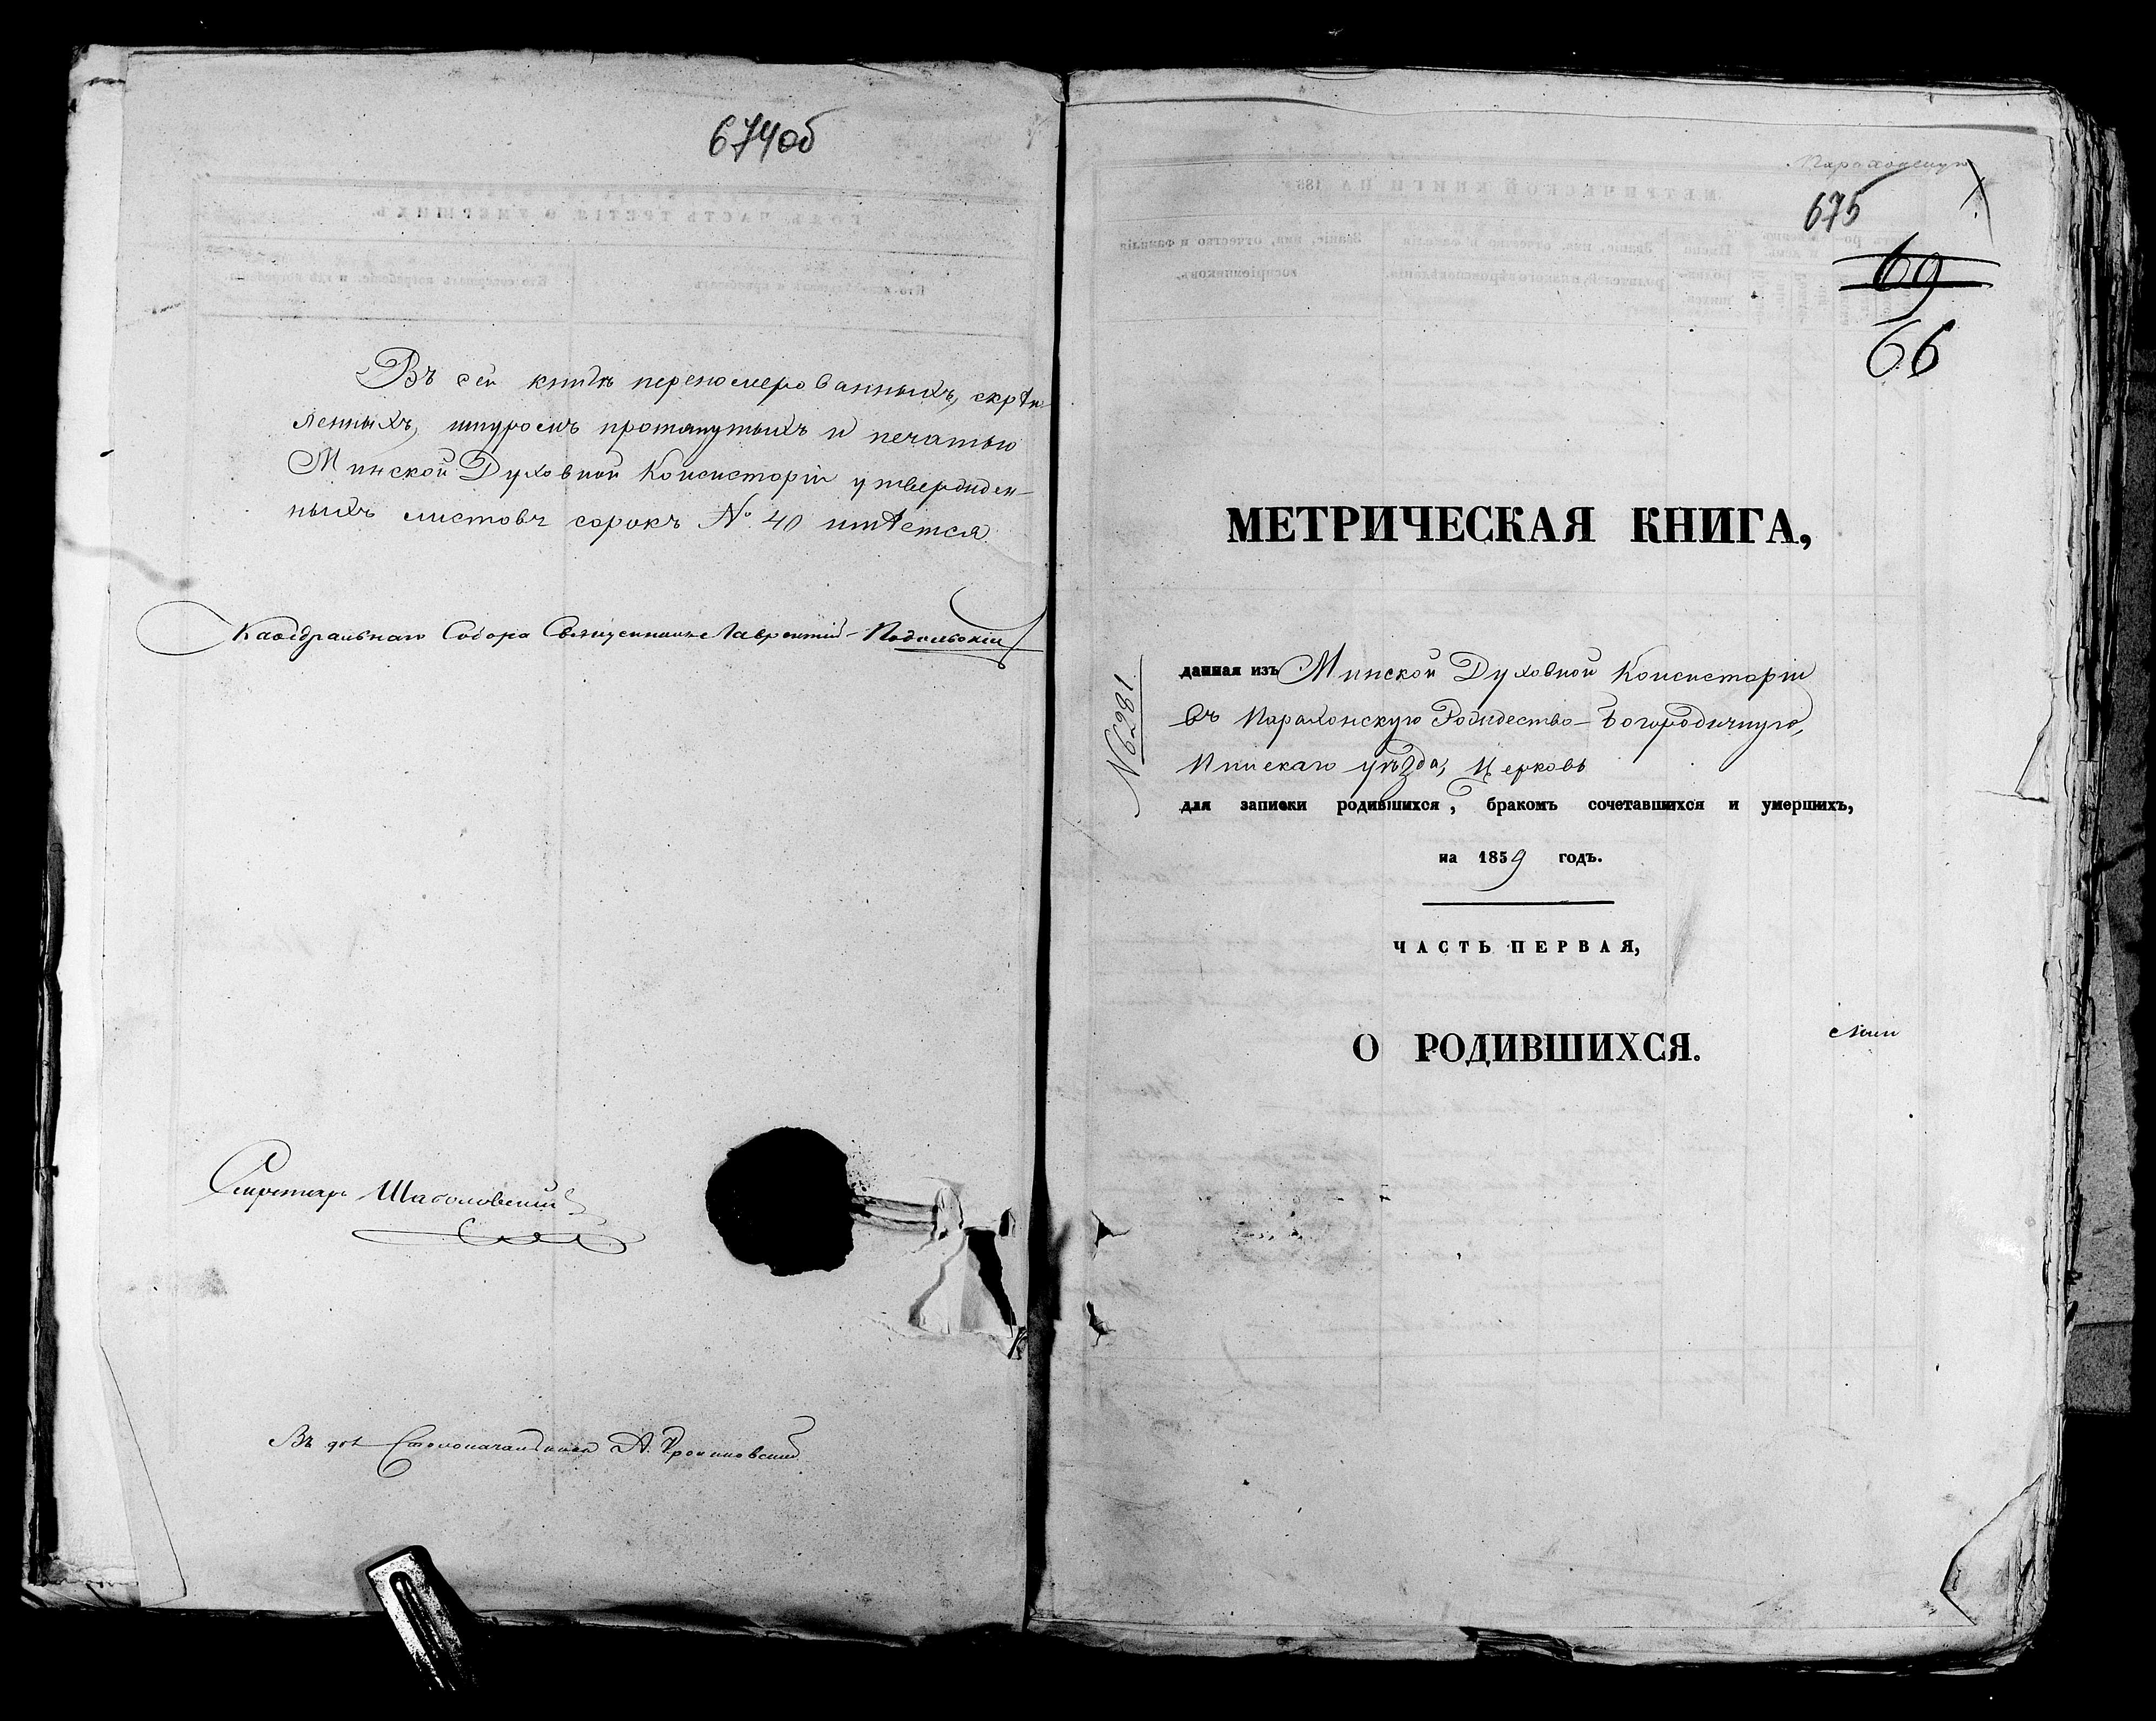 674об
Въ сей книгѣ перенумерованныхъ, скрѣп-
ленныхъ, шнуромъ протянутыхъ и печатью
Минской Духовной Консисторіи утвержден-
ныхъ листовъ сорокъ № 40 имѣется.
Каѳедральнаго Собора Священникъ Лаврентій Подольскій
Секретарь Шаболовскій
Въ дол. Столоначальника А.
675
69
66
МЕТРИЧЕСКАЯ КНИГА,
№ 6281.
данная изъ Минской Духовной Консисторіи
въ Парахонскую Рождество-Богородичную,
Пинскаго уѣзда, Церковь
для записки родившихся, бракомъ сочетавшихся и умершихъ,
на 1859 годъ.
ЧАСТЬ ПЕРВАЯ,
О РОДИВШИХСЯ.